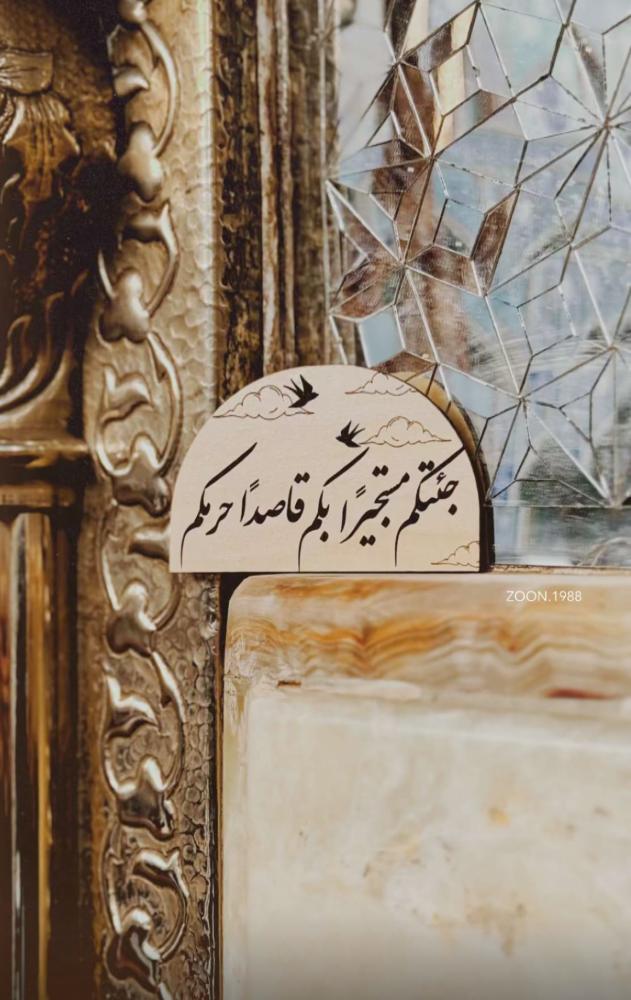 جئتكم مستجيرًا بكم قاصدًا حرمكم
ZOON.1988